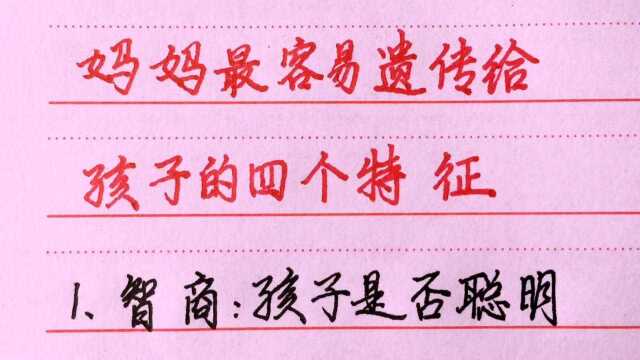 妈妈最容易遗传给
孩子的四个特征
1、智商:孩子是否聪明